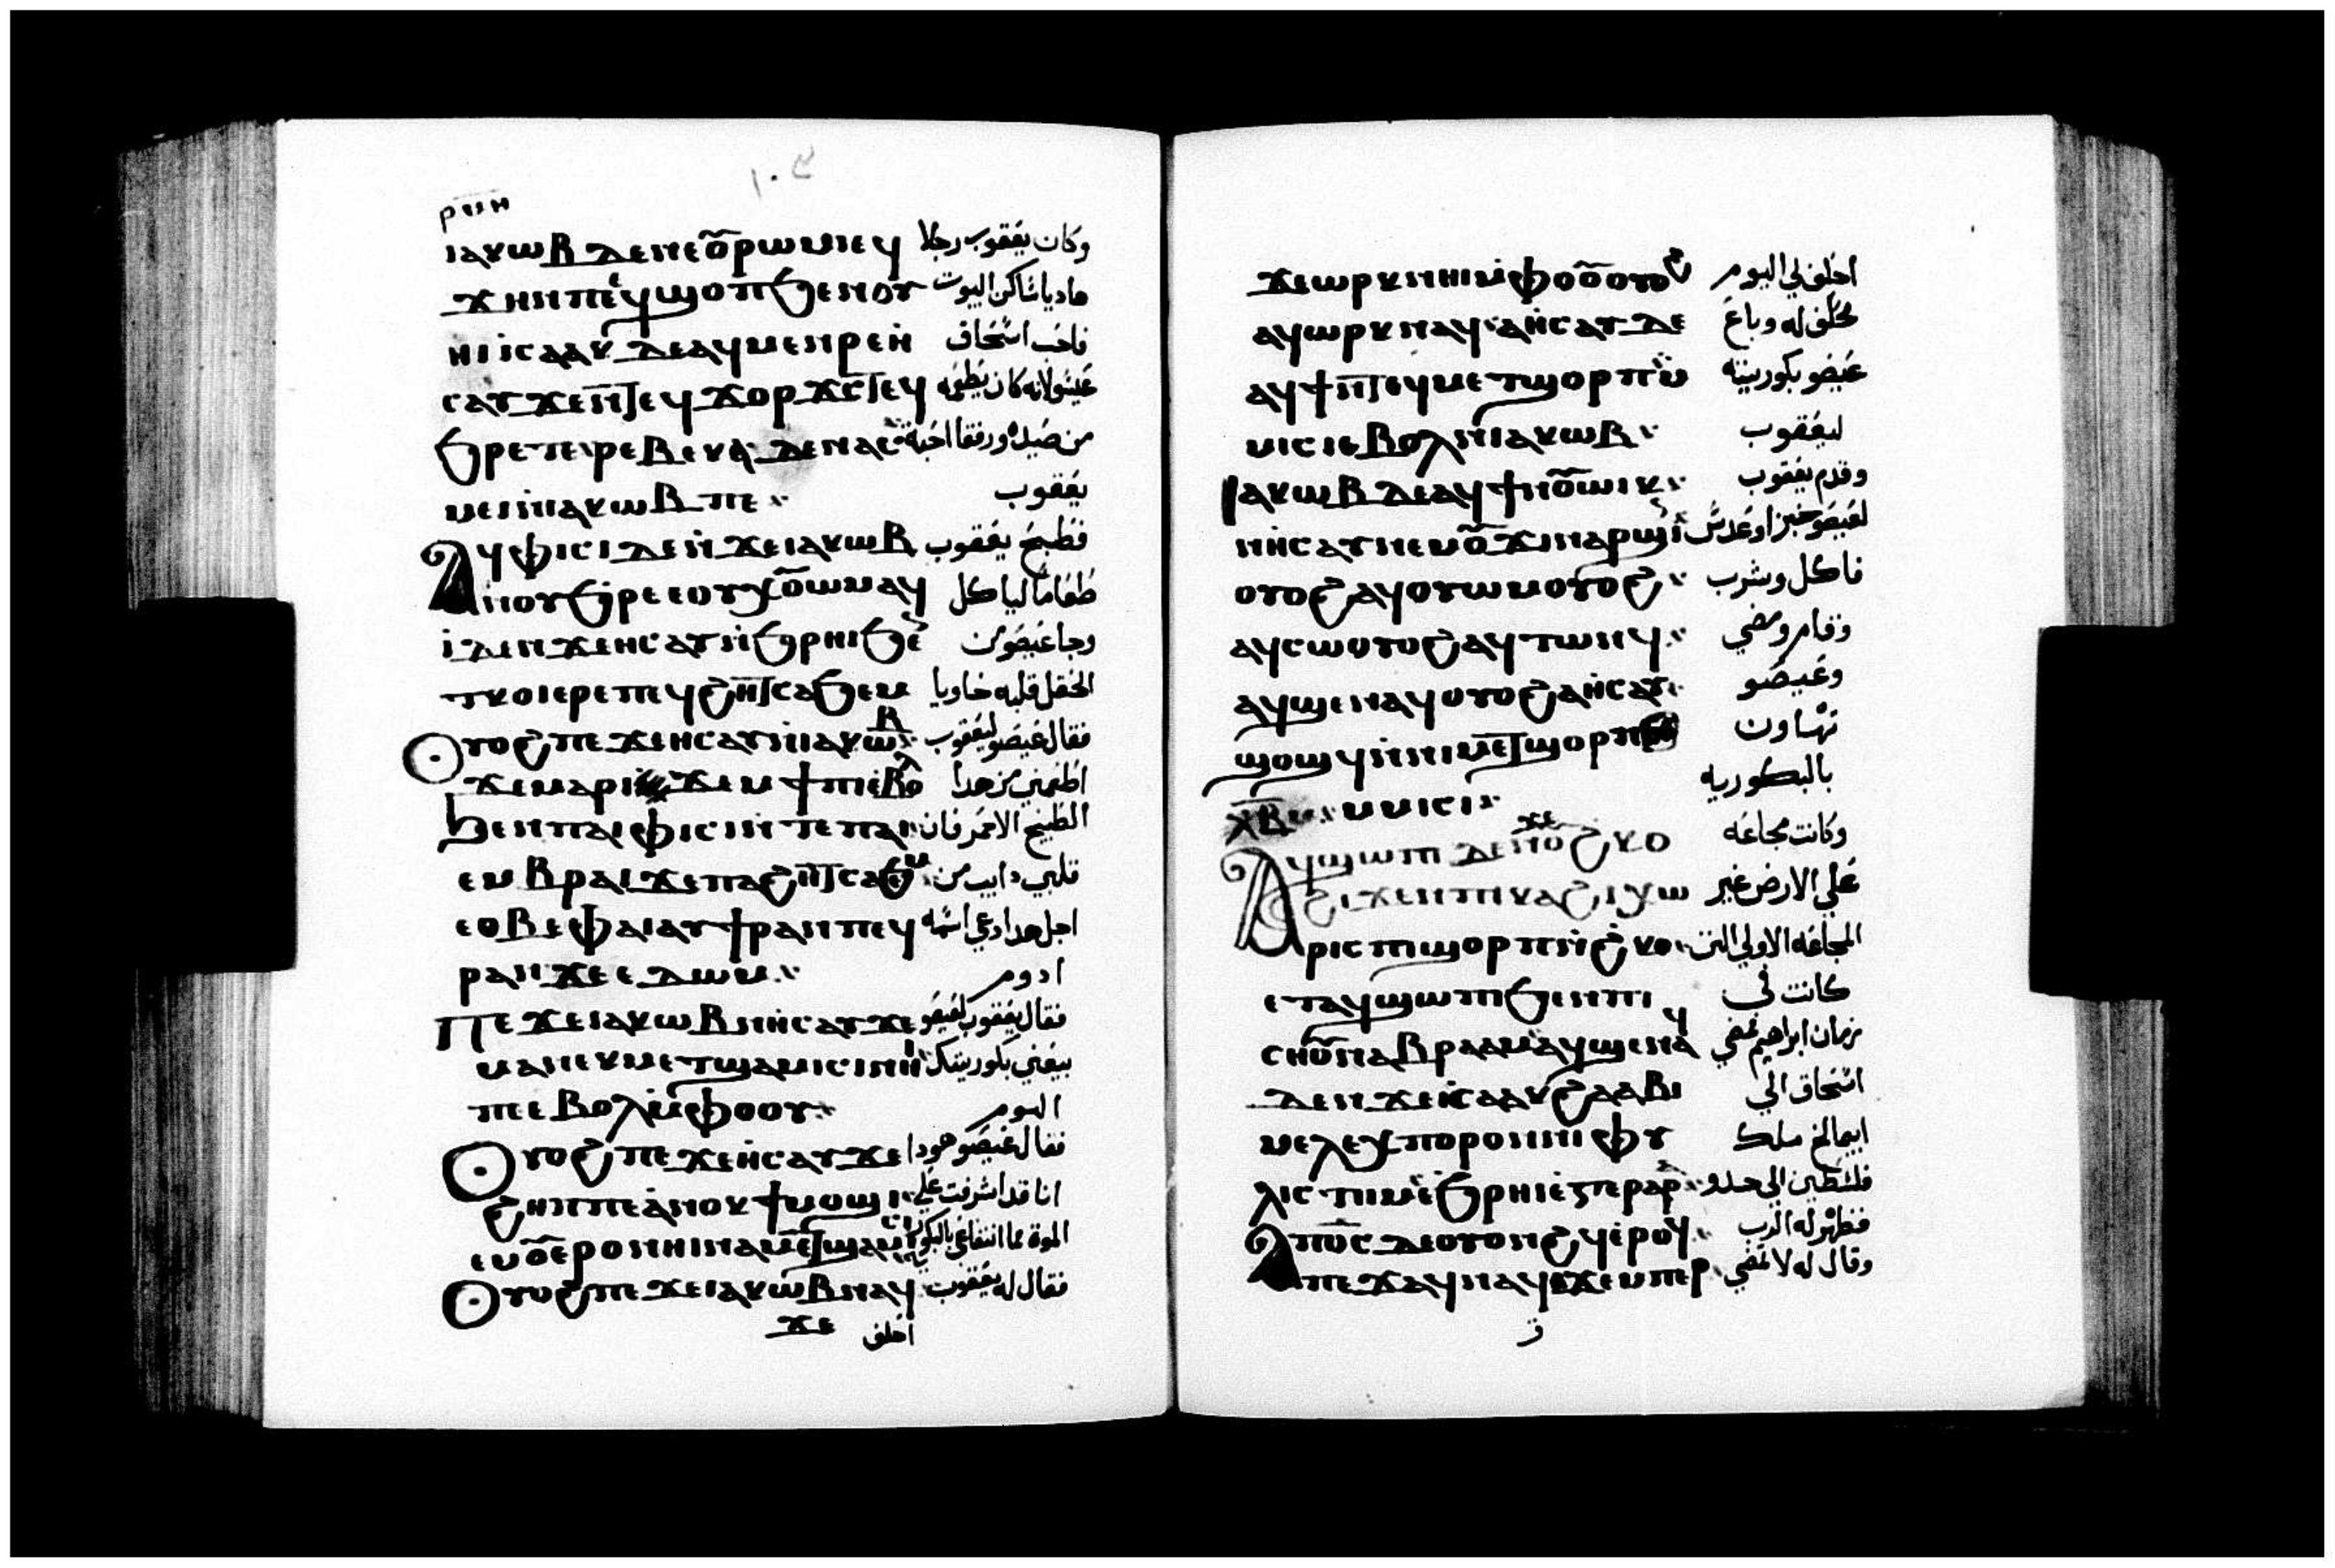 ⲣⲙⲏ
ⲓⲁⲕⲱⲃ ⲇⲉ ⲛⲉⲟⲩⲣⲱⲙⲓ ⲉϥ وكان يعقوب رجلا
ϫⲏⲛ ⲡⲉ ⲉϥϣⲟⲡ ϧⲉⲛ ⲟⲩ هاديا ساكن البيوت
ⲏⲓ ⲓⲥⲁⲁⲕ ⲇⲉ ⲁϥⲙⲉⲛⲣⲉ ⲏ فاحب اسحاق
ⲥⲁⲩ ϫⲉ ⲛⲧⲉϥϫⲟⲣϫⲥ ⲧⲉϥ عيسو لانه كان يطعمه
ϧⲣⲉ ⲧⲉ ⲣⲉⲃⲉⲕⲕⲁ ⲇⲉ ⲛⲁⲥ من صيده ورفقا احبة
ⲙⲉⲓ ⲛⲓⲁⲕⲱⲃ ⲡⲉ يعقوب
ⲁϥⲫⲓⲥⲓ ⲇⲉ ⲛϫⲉ ⲓⲁⲕⲱⲃ فطبخ يعقوب
ⲛⲟⲩϧⲣⲉ ⲉⲟⲩⲭⲟⲩⲱⲙ ⲁϥ طعاما لياكل
ⲓ ⲇⲉ ⲛϫⲉ ⲏⲥⲁⲩ ⲛϧⲣⲏⲓ ϧⲉ وجا عيصو من
ⲧⲕⲟⲓ ⲉⲣⲉ ⲡⲉϥϩⲏⲧ ⲥⲁϧⲉⲙ الحقل قلبه خاويا
ⲟⲩⲟϩ ⲡⲉϫⲉ ⲏⲥⲁⲩ ⲛⲓⲁⲕⲱⲃ فقال عيصو ليعقوب
ϫⲉ ⲙⲁⲣⲓ ϫⲉⲙϯⲡⲓ ⲉⲃⲟⲗ اطعمني من هدا
ϧⲉⲛ ⲡⲁⲓⲫⲓⲥⲓ ⲛⲧⲉ ⲡⲁⲓ الطبيخ الاحمر فان
ⲉⲩⲃⲣⲁⲓ ϫⲉ ⲡⲁϩⲏⲧ ⲥⲁϧⲉⲙ قلبي دايب من
ⲉⲑⲃⲉ ⲫⲁⲓ ⲁⲩϯⲣⲁⲛ ⲡⲉϥ اجل هدا دعي اسمه
ⲣⲁⲛ ϫⲉ ⲉⲇⲱⲙ ادوم
ⲡⲉϫⲉ ⲓⲁⲕⲱⲃ ⲛⲏⲥⲁⲩ ϫⲉ فقال يعقوب لعيصو
ⲙⲁ ⲛⲉⲕⲙⲉⲧϣⲁⲙⲓⲥⲓ ⲛⲏⲓ بيعني بكوريتك
ⲡⲉ ⲃⲟⲗ ⲙⲫⲟⲟⲩ اليوم
ⲟⲩⲟϩ ⲡⲉϫⲉ ⲏⲥⲁⲩ ϫⲉ فقال عيصو هودا
ϩⲏⲡⲡⲉ ⲁⲛⲟⲕ ϯⲙⲟϣⲓ انا قد اشرفت علي
ⲉⲙⲟⲩ ⲉⲣⲟ ⲛⲏⲓ ⲛⲁⲙⲉⲧϣⲁⲙⲓⲥⲓ الموة فما انتفاعي بالبكوريه
ⲟⲩⲟϩ ⲡⲉϫⲉ ⲓⲁⲕⲱⲃ ⲛⲁϥ فقال له يعقوب
ϫⲉ احلف
ϫⲉ ⲱⲣⲕ ⲛⲏⲓ ⲙⲫⲟⲟⲩ ⲟⲩⲟϩ احلف لي اليوم
ⲁϥⲱⲣⲕ ⲛⲁϥ ⲁ ⲏⲥⲁⲩ ⲇⲉ فحلف له وباع
ⲁϥϯ ⲛⲧⲉϥⲙⲉⲧϣⲟⲣⲡ ⲙ عيصو بكوريته
ⲙⲓⲥⲓ ⲉⲃⲟⲗ ⲛⲓⲁⲕⲱⲃ ليعقوب
ⲓⲁⲕⲱⲃ ⲇⲉ ⲁϥϯ ⲛⲟⲩⲱⲓⲕ وقدم يعقوب
ⲛⲏⲥⲁⲩ ⲛⲉⲙ ⲟⲩϫⲓⲛⲁⲣϣⲓⲛ لعيصو خبزا وعدس
ⲟⲩⲟϩ ⲁϥⲟⲩⲱⲙ ⲟⲩⲟϩ فاكل وشرب
ⲁϥⲥⲱ ⲟⲩⲟϩ ⲁϥⲧⲱⲛϥ وقام ومضي
ⲁϥϣⲉⲛⲁϥ ⲟⲩⲟϩ ⲁ ⲏⲥⲁⲩ وعيصو
ϣⲟϣϥ ⲛⲛⲓⲙⲉⲧϣⲟⲣⲡ تهاون
ⲙⲙⲓⲥⲓ بالبكوريه
ⲁϥϣⲱⲡⲓ ⲇⲉ ⲛϫⲉ ⲟⲩϩⲕⲟ وكانت مجاعه
ϩⲓϫⲉⲛ ⲡⲓⲕⲁϩⲓ ⲭⲱ علي الارض غير
ⲣⲓⲥ ⲡⲓϣⲟⲣⲡ ⲛϩⲕⲟ المجاعه الاولي التي
ⲉⲧⲁϥϣⲱⲡⲓ ϧⲉⲛ ⲡⲓ كانت في
ⲥⲏⲟⲩ ⲛⲁⲃⲣⲁⲁⲙ ⲁϥϣⲉⲛⲁϥ زمان ابراهيم فمضي
ⲇⲉ ⲛϫⲉ ⲓⲥⲁⲁⲕ ϩⲁ ⲁⲃⲓ اسحاق الي
ⲙⲉⲗⲉⲭ ⲡⲟⲣⲟ ⲛⲛⲓⲫⲩ ابيمالخ ملك
ⲗⲓⲥⲧⲓⲓⲙ ⲉϧⲣⲏⲓ ⲉⲅⲉⲣⲁⲣⲁ فلسطين الي جلدو
ⲁⲡϭⲥ ⲇⲉ ⲟⲩⲟⲛϩϥ ⲉⲣⲟϥ فظهر له الرب
ⲡⲉϫⲁϥ ⲛⲁϥ ϫⲉ ⲙⲡⲉⲣ وقال له لا تمضي